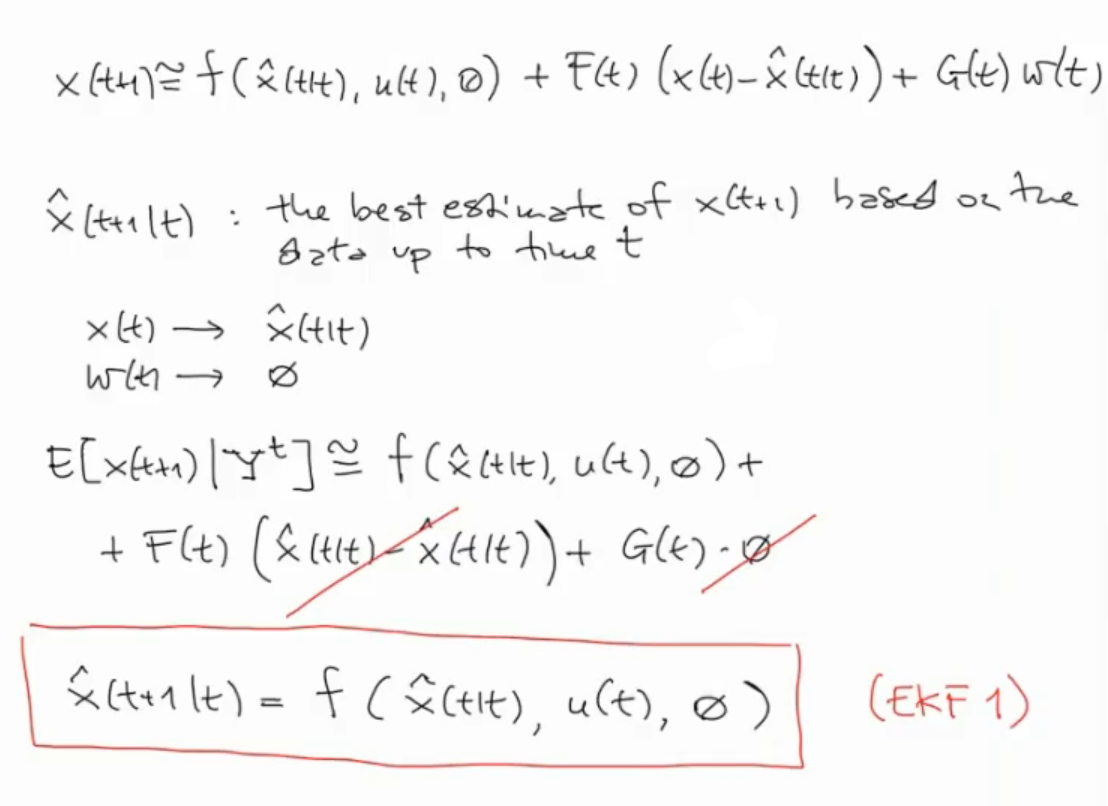 x(t+1) ≅ f(x̂(t|t), u(t), ∅) + F(t) (x(t) - x̂(t|t)) + G(t) w(t)
x̂(t+1|t) : the best estimate of x(t+1) based on the
data up to time t
x(t) → x̂(t|t)
w(t) → ∅
E[x(t+1)|Y^t] ≅ f(x̂(t|t), u(t), ∅) +
+ F(t) (x̂(t|t) - x̂(t|t)) + G(t) · ∅
x̂(t+1|t) = f(x̂(t|t), u(t), ∅) (EKF 1)